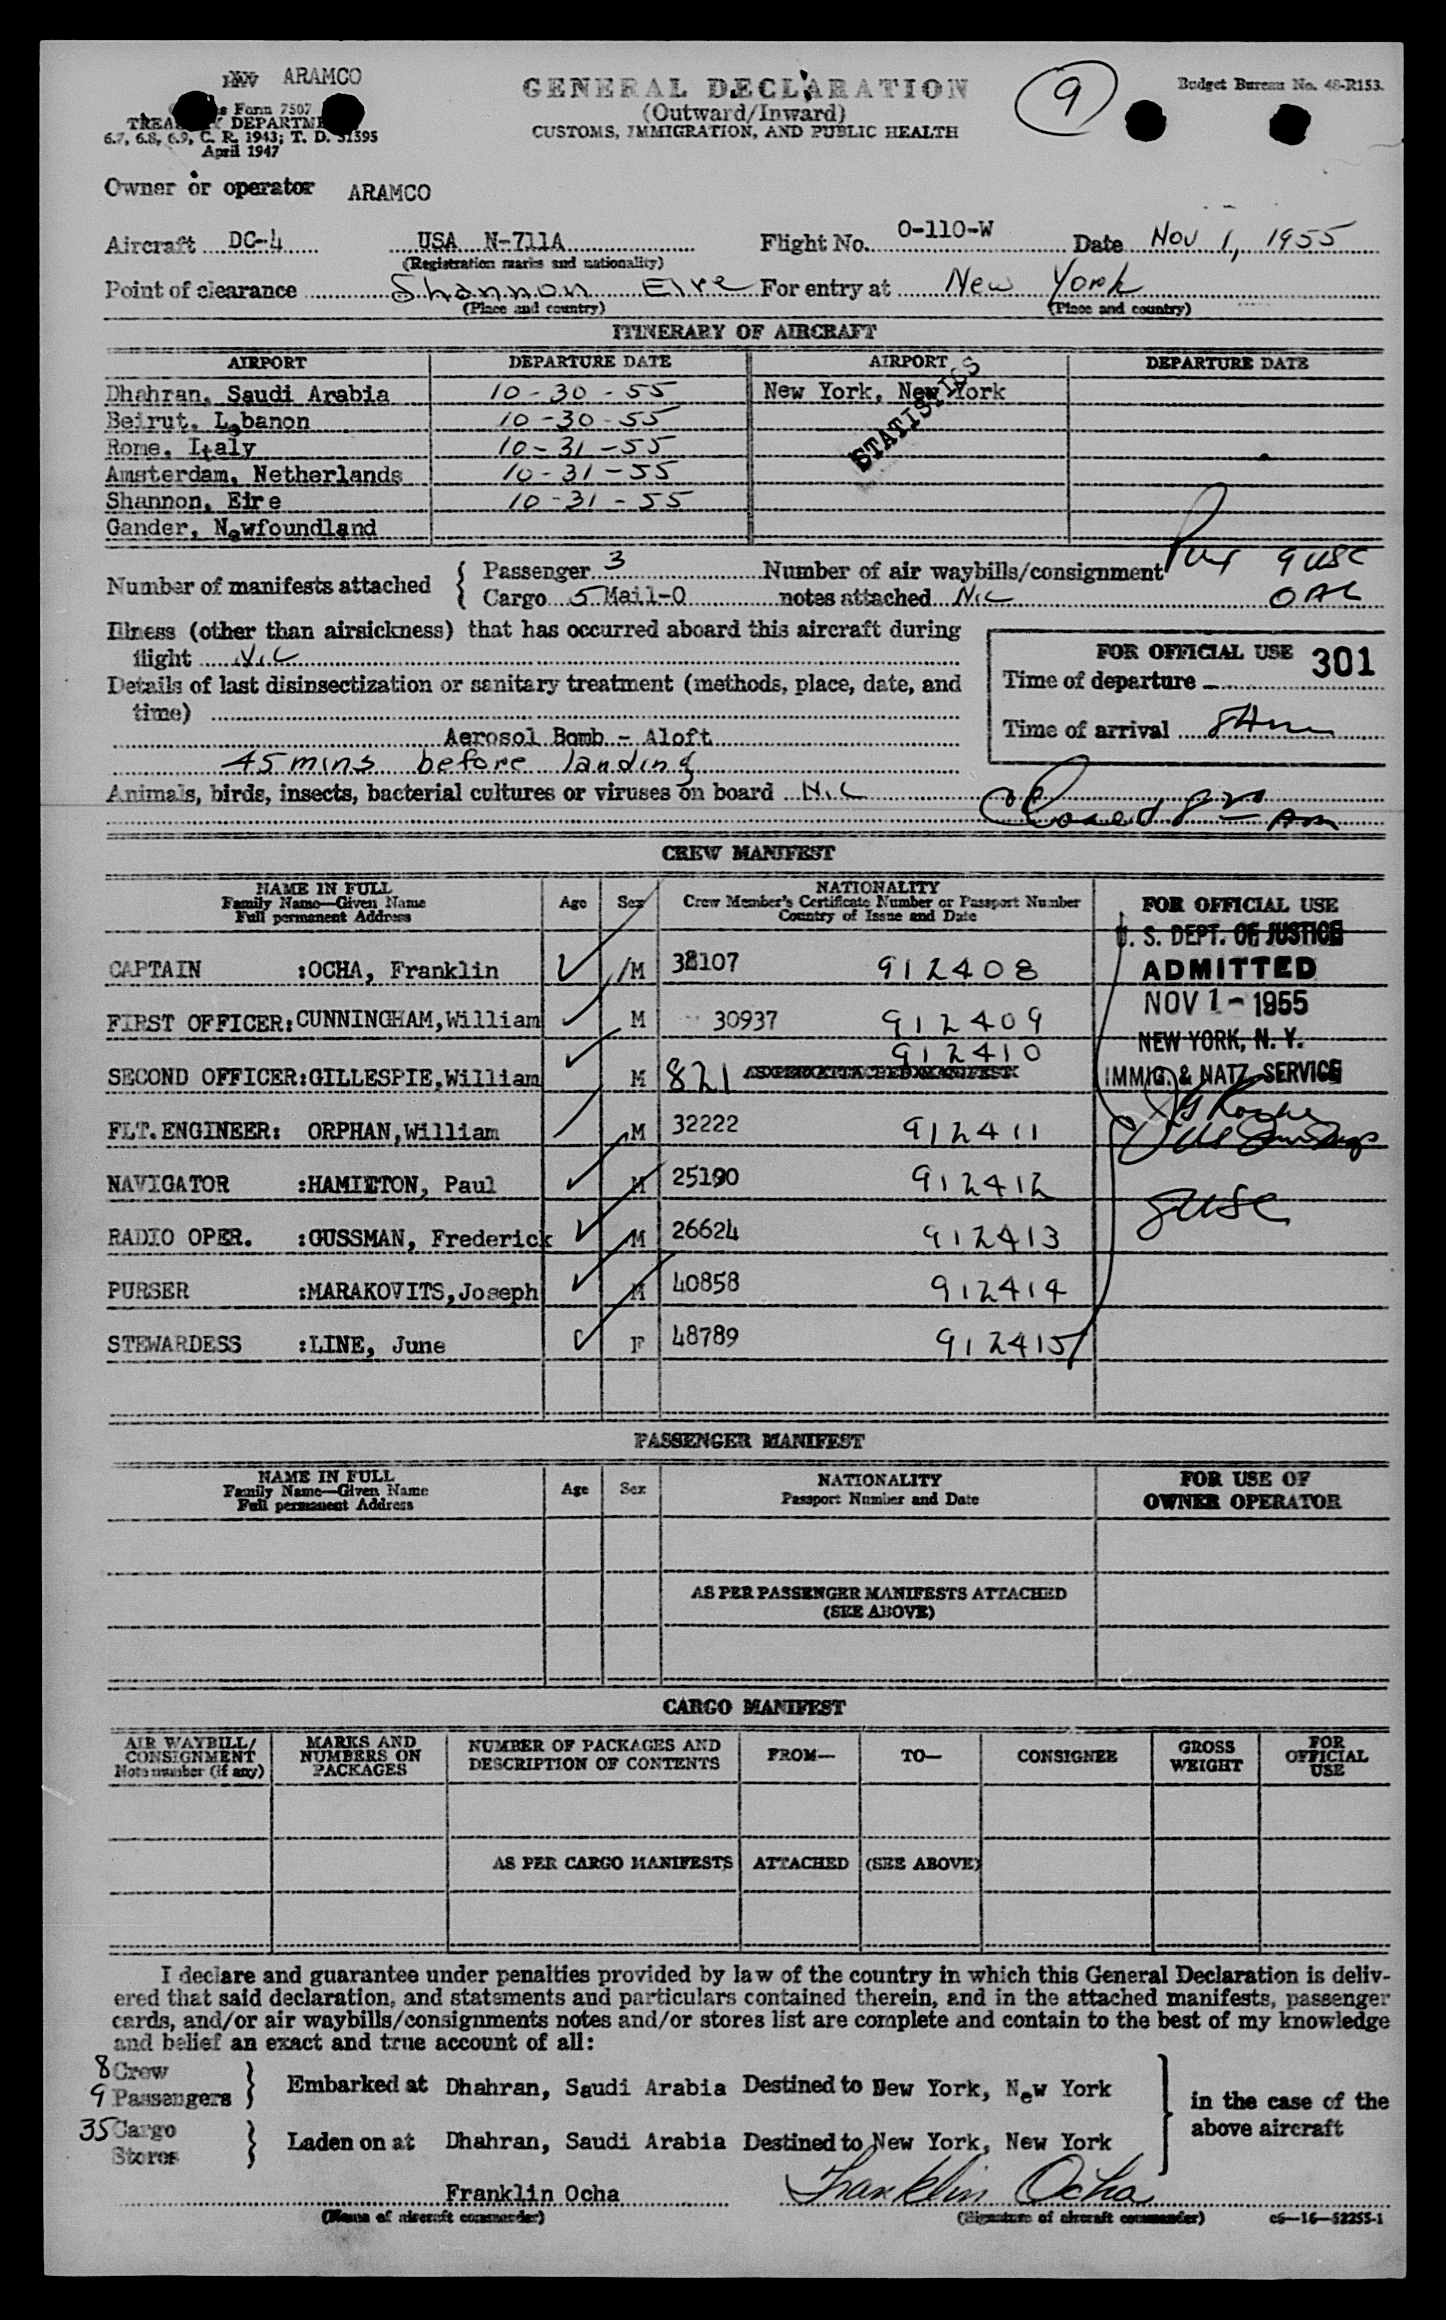 ARAMCO
GENERAL DECLARATION
(Outward/Inward)
CUSTOMS, IMMIGRATION, AND PUBLIC HEALTH
9
Budget Bureau No. 48-R153.
Form 7507
TREASURY DEPARTMENT
6.7, 6.8, 6.9, C. R. 1943; T. D. 51595
April 1947
Owner or operator ARAMCO
Aircraft DC-4 USA N-711A Flight No. O-110-W Date Nov 1, 1955
(Registration marks and nationality)
Point of clearance Shannon Eire For entry at New York
(Place and country) (Place and country)
ITINERARY OF AIRCRAFT
AIRPORT DEPARTURE DATE AIRPORT DEPARTURE DATE
Dhahran, Saudi Arabia 10-30-55 New York, New York
Beirut, Lebanon 10-30-55
STATISTICS
Rome, Italy 10-31-55
Amsterdam, Netherlands 10-31-55
Shannon, Eire 10-31-55
Gander, Newfoundland
Number of manifests attached { Passenger 3 Number of air waybills/consignment 9 USC
Cargo 5 Mail-0 notes attached Nil
Illness (other than airsickness) that has occurred aboard this aircraft during
flight Nil
FOR OFFICIAL USE 301
Details of last disinsectization or sanitary treatment (methods, place, date, and
time)
Time of departure
Aerosol Bomb - Aloft
Time of arrival 8 Am
45 mins before landing
Animals, birds, insects, bacterial cultures or viruses on board Nil
Closed Am
CREW MANIFEST
NAME IN FULL
Family Name—Given Name
Full permanent Address
Age Sex
NATIONALITY
Crew Member's Certificate Number or Passport Number
Country of Issue and Date
FOR OFFICIAL USE
U. S. DEPT. OF JUSTICE
ADMITTED
NOV 1 - 1955
NEW YORK, N. Y.
IMMIG. & NATZ. SERVICE
8 USC
CAPTAIN :OCHA, Franklin M 38107 912408
FIRST OFFICER:CUNNINGHAM,William M 30937 912409
SECOND OFFICER:GILLESPIE,William M 821 AS PER ATTACHED MANIFEST 912410
FLT.ENGINEER: ORPHAN,William M 32222 912411
NAVIGATOR :HAMILTON, Paul M 25190 912412
RADIO OPER. :GUSSMAN, Frederick M 26624 912413
PURSER :MARAKOVITS,Joseph M 40858 912414
STEWARDESS :LINE, June F 48789 912415
PASSENGER MANIFEST
NAME IN FULL
Family Name—Given Name
Full permanent Address
Age Sex
NATIONALITY
Passport Number and Date
FOR USE OF
OWNER OPERATOR
AS PER PASSENGER MANIFESTS ATTACHED
(SEE ABOVE)
CARGO MANIFEST
AIR WAYBILL/
CONSIGNMENT
Note number (if any)
MARKS AND
NUMBERS ON
PACKAGES
NUMBER OF PACKAGES AND
DESCRIPTION OF CONTENTS
FROM—
TO—
CONSIGNEE
GROSS
WEIGHT
FOR
OFFICIAL
USE
AS PER CARGO MANIFESTS ATTACHED (SEE ABOVE)
I declare and guarantee under penalties provided by law of the country in which this General Declaration is deliv-
ered that said declaration, and statements and particulars contained therein, and in the attached manifests, passenger
cards, and/or air waybills/consignments notes and/or stores list are complete and contain to the best of my knowledge
and belief an exact and true account of all:
8 Crew
9 Passengers } Embarked at Dhahran, Saudi Arabia Destined to New York, New York
in the case of the
above aircraft
35 Cargo
Stores } Laden on at Dhahran, Saudi Arabia Destined to New York, New York
Franklin Ocha Franklin Ocha
(Name of aircraft commander) (Signature of aircraft commander) c6—16—52255-1